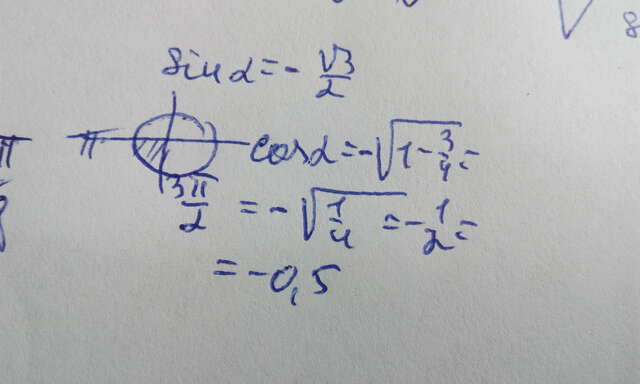 sin α = - √3/2
π cos α = -√(1 - 3/4) =
3π/2 = -√(1/4) = -1/2 =
= -0,5